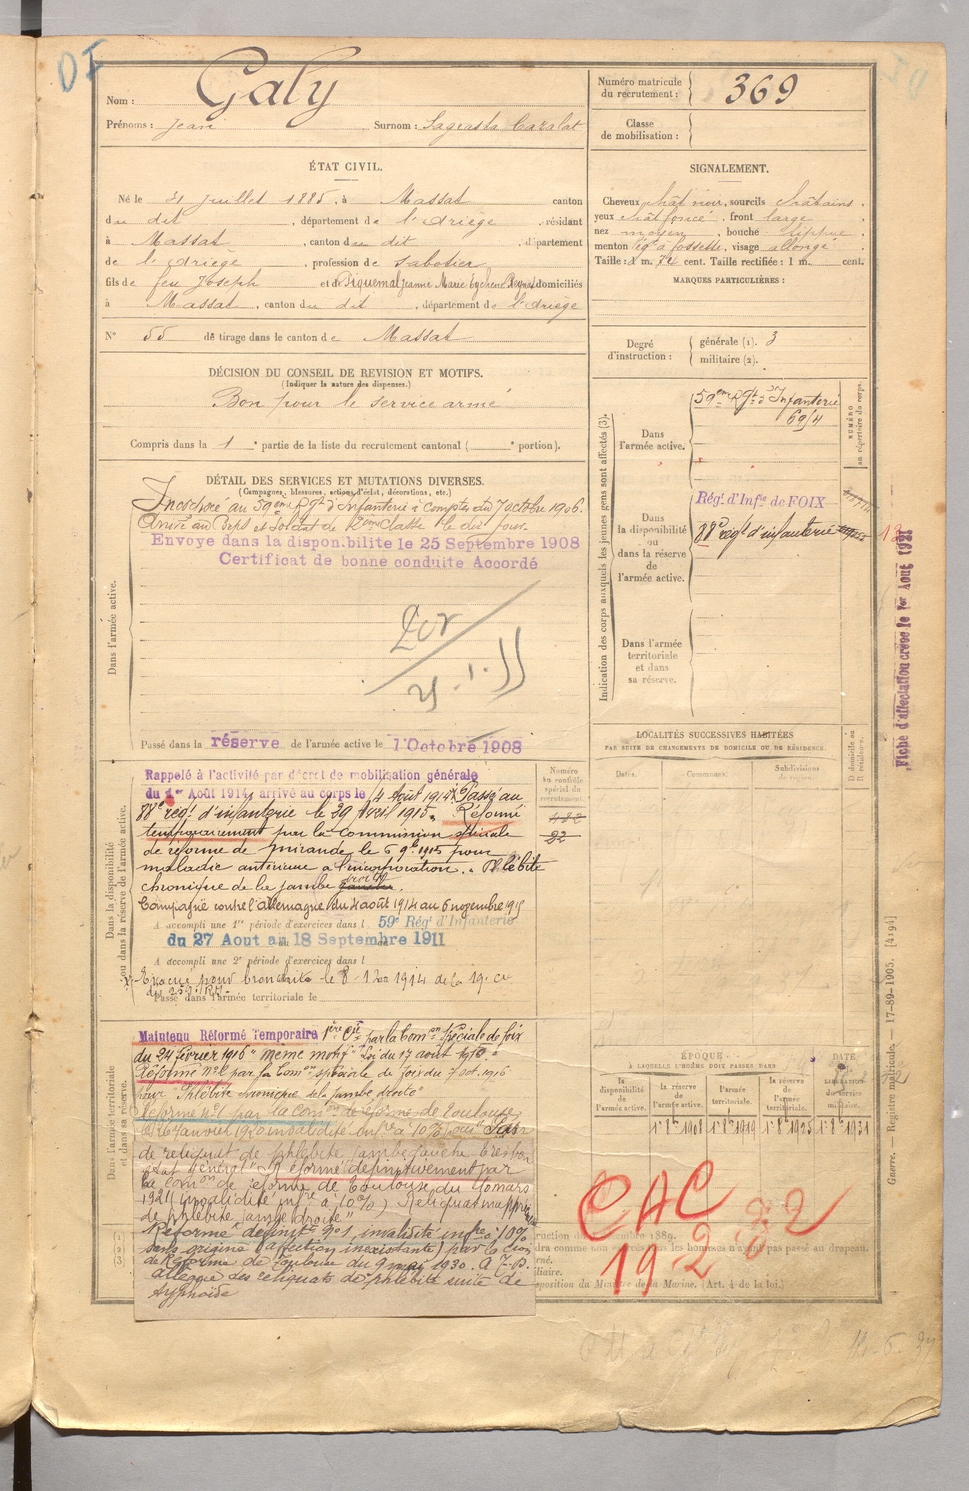 Nom : Galy
Prénoms : Jean Surnom : Sagrasta Cazalat
ÉTAT CIVIL.
Né le 21 juillet 1885, à Massat canton
du dit, département de l'Ariège, résidant
à Massat, canton du dit, département
de l'Ariège, profession de Sabotier
fils de feu Joseph et de Piquemal Jeanne Marie Eychenne domiciliés
à Massat, canton du dit, département de l'Ariège
N° 55 de tirage dans le canton de Massat
DÉCISION DU CONSEIL DE REVISION ET MOTIFS.
(Indiquer la nature des dispenses.)
Bon pour le service armé
Compris dans la 1 e partie de la liste du recrutement cantonal ( e portion).
DÉTAIL DES SERVICES ET MUTATIONS DIVERSES.
(Campagnes, blessures, actions d'éclat, décorations, etc.)
Incorporé au 59eme Rgt d'Infanterie à compter du 7 octobre 1906.
Arrivé au Corps et Soldat de 2eme Classe le dit jour.
Envoye dans la disponibilite le 25 Septembre 1908
Certificat de bonne conduite Accordé
Dans l'armée active.
Passé dans la réserve de l'armée active le 1 Octobre 1908
Dans la disponibilité
ou dans la réserve de l'armée active.
Rappelé à l'activité par décret de mobilisation générale
du 1er Août 1914, arrivé au corps le 4 Août 1914. Passé au
88e regt d'infanterie le 29 Avril 1915. Réformé
temporairement par la Commission spéciale
de réforme de Mirande le 6 9bre 1915 pour
maladie antérieure à l'incorporation. Phlébite
chronique de la jambe droite gauche.
Campagne contre l'Allemagne du 4 août 1914 au 6 novembre 1915
A accompli une 1re période d'exercices dans l 59e Régt d'Infanterie
du 27 Aout au 18 Septembre 1911
A accompli une 2e période d'exercices dans l
Evacué pour bronchite le 8 1914
du 259e RI
Passé dans l'armée territoriale le
Numéro
au contrôle
spécial du
recrutement.
Dans l'armée territoriale
et dans sa réserve.
Maintenu Réformé Temporaire 1ère Cie par la Comon Spéciale de Foix
du 24 février 1916 "même motif" Loi du 17 août 1915.
Réformé n°2 par la Comon spéciale de Foix du 7 oct. 1916
pour "Phlébite chronique de la jambe droite"
Réformé n°1 par la Comon de réforme de Toulouse
le 26 janvier 1920 invalidité infre à 10% pour
de reliquat de phlébite jambe gauche très bon
état général" Réformé définitivement par
la Comon de réforme de Toulouse du 10 mars
1921 (invalidité infre à 10%) Reliquat
de phlébite jambe droite"
Réformé définitf n°1 invalidité infre à 10%
sans origine (affection inexistante) par la Cion
de Réforme de Toulouse du 9 mai 1930.
Allègue des reliquats de phlébite suite de
typhoïde
Numéro matricule
du recrutement : 369
Classe
de mobilisation :
SIGNALEMENT.
Cheveux chât noir, sourcils châtains.
yeux chât foncé, front large
nez moyen, bouche lippue,
menton lég à fossette, visage allongé
Taille : 1 m. 74 cent. Taille rectifiée : 1 m. cent.
MARQUES PARTICULIÈRES :
Degré
d'instruction :
générale (1). 3
militaire (2).
Indication des corps auxquels les jeunes gens sont affectés (3).
NUMÉRO
au répertoire du corps.
Dans
l'armée active.
59eme Rgt d'Infanterie
69/4
Dans
la disponibilité
ou
dans la réserve
de
l'armée active.
Régt d'Infie de FOIX
88e regt d'infanterie
Dans l'armée
territoriale
et dans
sa réserve.
Fiche d'affectation créée le 1er Aout 1921
LOCALITÉS SUCCESSIVES HABITÉES
PAR SUITE DE CHANGEMENTS DE DOMICILE OU DE RÉSIDENCE.
Dates. Communes. Subdivisions
de région.
D domicile ou
R résidence.
ÉPOQUE
À LAQUELLE L'HOMME DOIT PASSER DANS
la
disponibilité
de
l'armée active.
la réserve
de
l'armée active.
l'armée
territoriale.
la réserve
de
l'armée
territoriale.
DATE
de la
LIBÉRATION
du service
militaire.
1r 8e 1908 1r 8e 1919 1r 8e 1925 1r 8e 1931
CAC
1922
novembre 1889.
les hommes n'ayant pas passé au drapeau.
disposition du Ministre de la Marine. (Art. 4 de la loi.)
Guerre. — Registre matricule. — 17-89-1905. [4194]